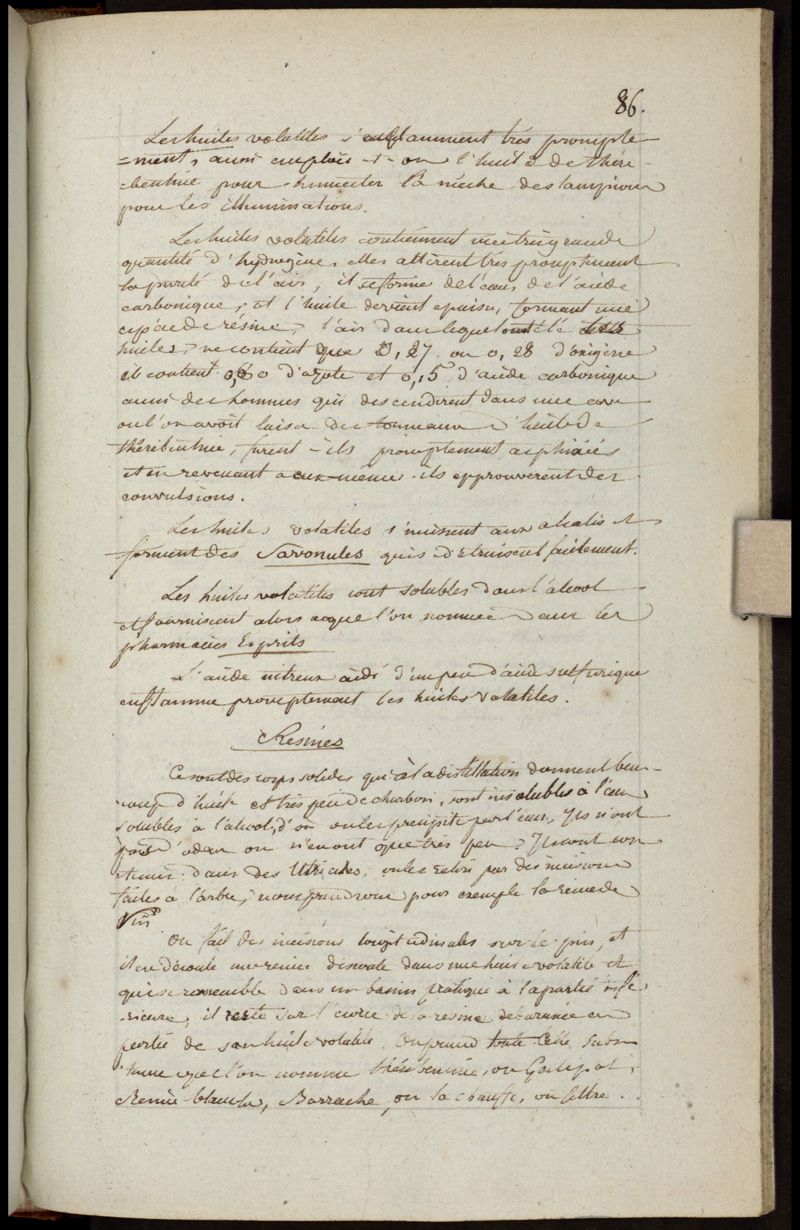 86.
Les huiles volatiles s'enflamment très prompte
=ment, aussi emploie -t- on l'huile de théré-
-bentine pour humecter la mèche des lampions
pour les illuminations.
Les huiles volatiles contiennent une très grande
quantité d'hydrogène, elles altèrent très promptement
la pureté de l'air, il se forme de l'eau, de l'acide
carbonique, et l'huile devient épaisse, formant une
espèce de résine, l'air dans lequel ont été les
huiles, ne contient que 0,27 ou 0,28 d'oxigène
il contient 0,60 d'azote et 0,15 d'acide carbonique
aussi des hommes qui descendirent dans une cave
ou l'on avoit laissé des tonneaux d'huile de
thérébentine, furent-ils promptement asphixiés
et en revenant a eux-mêmes ils epprouverent des
convulsions.
Les huiles volatiles s'unissent aux alcalis et
forment des Savonules qui se détruisent facilement.
Les huiles volatiles sont solubles dans l'alcool
et fournissent alors ce que l'on nomme dans les
pharmacies Esprits
L'acide nitreux aidé d'un peu d'acide sulfurique
enflamme promptement les huiles volatiles.
Resines
Ce sont des corps solides qui à la distillation donnent beau-
coup d'huile et très peu de charbon, sont insolubles à l'eau,
solubles à l'alcool, d'où on les precipite par l'eau, Ils n'ont
pas d'odeur ou n'en ont que très peu; Ils sont con
tenus dans des Utricules, on les retire par des incisions
faites à l'arbre; nous prendrons pour exemple la resine de
Pin
On fait des incisions longitudinales sur le pin, et
il en découle une resine dissoute dans une huile volatile et
qui se rassemble dans un bassin pratiqué à la partie infé
rieure, il reste sur l'écorce de la resine débarassée en
partie de son huile volatile. On prend toute cette subs
tance que l'on nomme thérébentine, ou Galipot,
Resine blanche, Barrache, on la chauffe, on filtre.